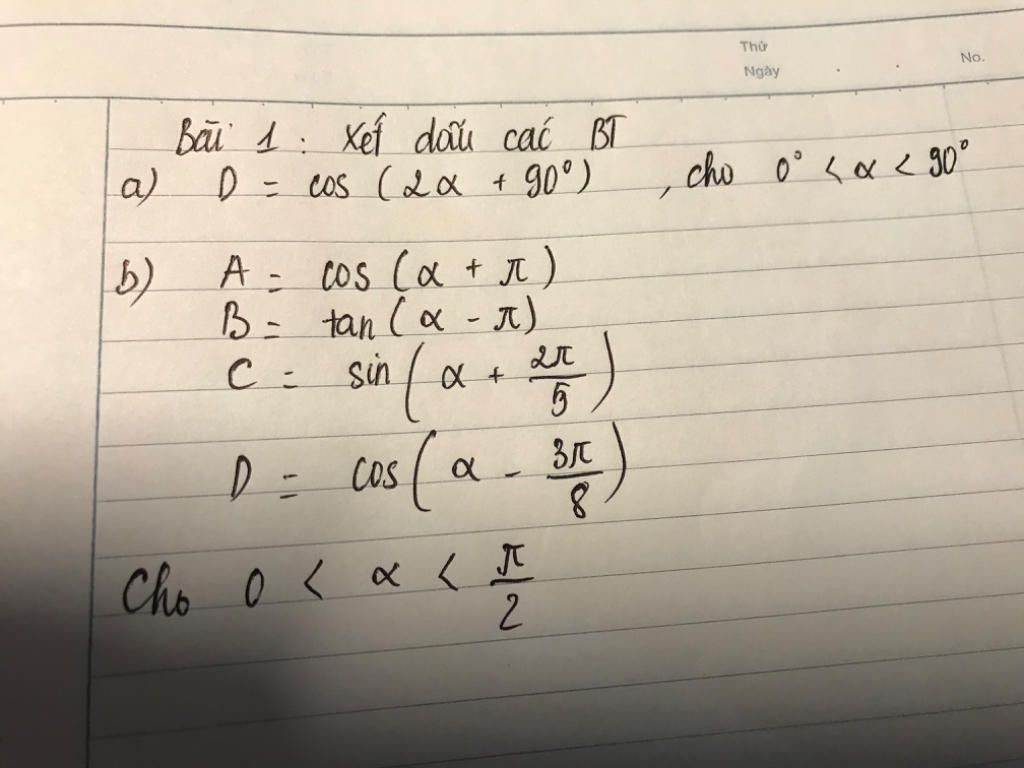 Thứ
Ngày . .
No.
Bài 1 : Xét dấu các BT
a) D = cos (2α + 90°) , cho 0° < α < 90°
b) A = cos (α + π)
B = tan (α - π)
C = sin (α + 2π/5)
D = cos (α - 3π/8)
Cho 0 < α < π/2